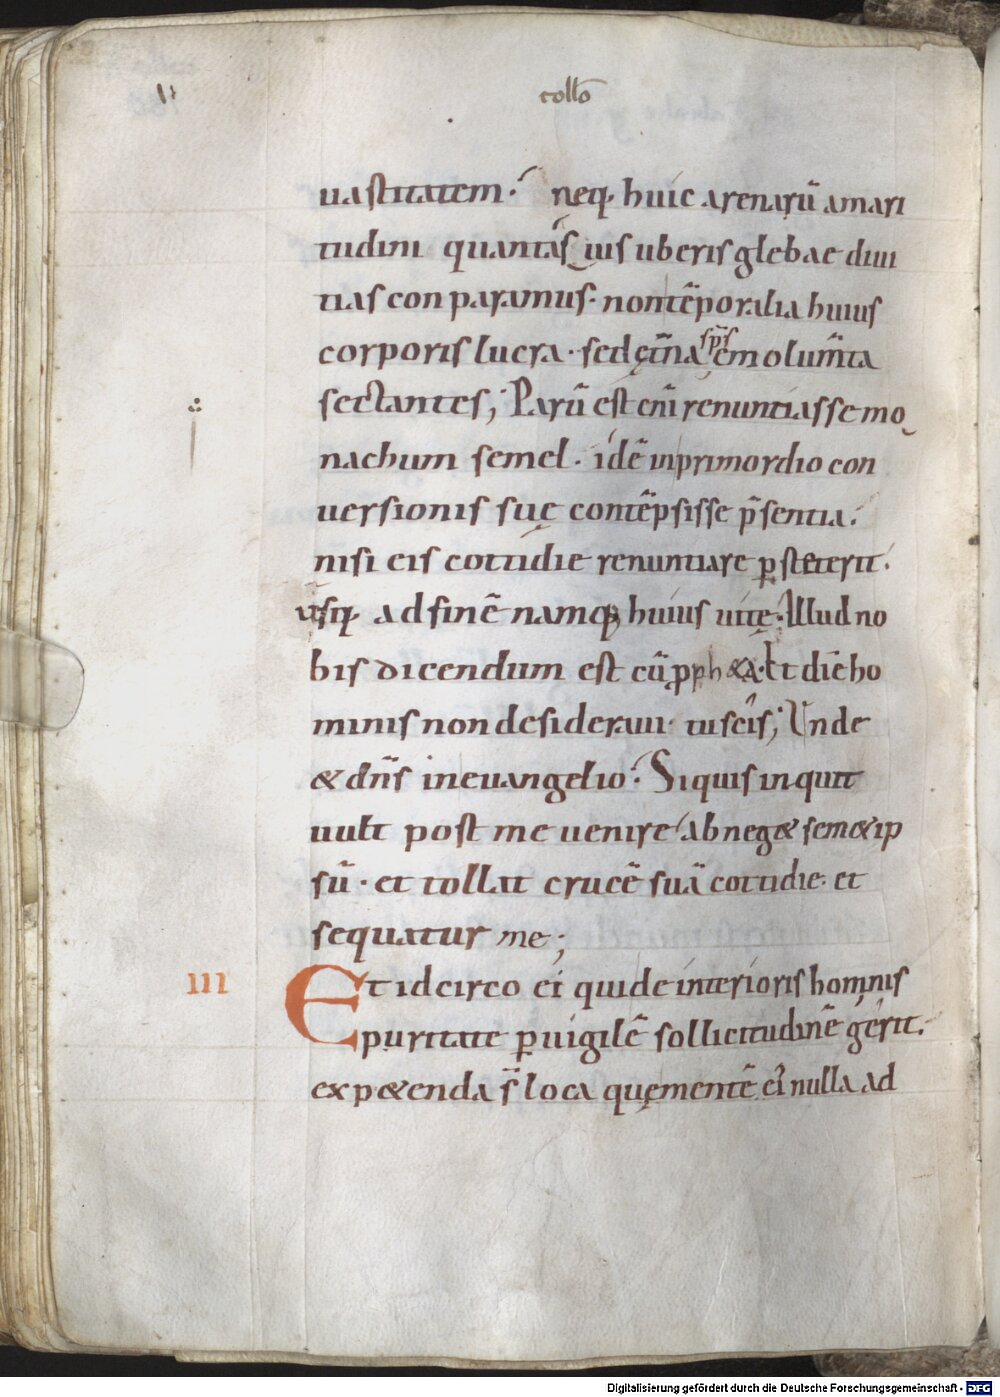 collō
uastitatem. neq; huic arenarū amari
tudini quantasuis uberis glebae diui
tias conparamus. non tēporalia huius
corporis lucra. sed ęt̄na sp̄s emolum̄ta
sectantes; Parū est eni renuntiasse mo
nachum semel. idē inprimordio con
uersionis suę contēpsisse p̄sentia.
nisi eis cottidie renuntiare ꝑstiterit.
usq; ad finē namq; huius uitę. Illud no
bis dicendum est cū pph&a. Et diē ho
minis non desideraui. tu scis; Unde
& dn̄s in euangelio. Siquis inquit
uult post me uenire abneg& sem&ip
sū. et tollat crucē suā cottidie. et
sequatur me;
III
Et idcirco ei qui de interioris hominis
puritate ꝑuigilē sollicitudinē gerit.
exp&enda s̄ loca quę mentē ei nulla ad
Digitalisierung gefördert durch die Deutsche Forschungsgemeinschaft - DFG